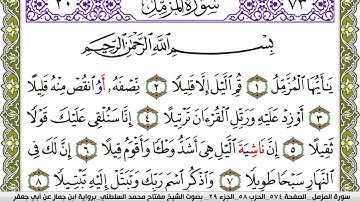 ٢٠ سُورَةُ المُزَّمِّل ٧٣
بِسْمِ اللَّهِ الرَّحْمَٰنِ الرَّحِيمِ
يَٰأَيُّهَا الْمُزَّمِّلُ ١ قُمِ الَّيْلَ إِلَّا قَلِيلًا ٢ نِصْفَهُ أَوُ انقُصْ مِنْهُ قَلِيلًا
٣ أَوْ زِدْ عَلَيْهِ وَرَتِّلِ الْقُرْءَانَ تَرْتِيلًا ٤ إِنَّا سَنُلْقِى عَلَيْكَ قَوْلًا
ثَقِيلًا ٥ إِنَّ نَاشِيَةَ الَّيْلِ هِىَ أَشَدُّ وَطْـًٔا وَأَقْوَمُ قِيلًا ٦ إِنَّ لَكَ فِى
النَّهَارِ سَبْحًا طَوِيلًا ٧ وَاذْكُرِ اسْمَ رَبِّكَ وَتَبَتَّلْ إِلَيْهِ تَبْتِيلًا ٨
سورة المزمل الصفحة ٥٧٤ الحزب ٥٨ الجزء ٢٩ بصوت الشيخ مفتاح محمد السلطني برواية ابن جماز عن أبي جعفر